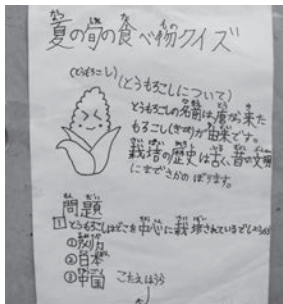 夏の旬の食べ物クイズ
(とうもろこし)
(とうもろこしについて)
とうもろこしの名前は唐から来た
もろこし(きび)が由来です。
栽培の歴史は古く、昔の文明
にまでさかのぼります。
問題
1 とうもろこしはどこを中心に栽培されているでしょうか
①アメリカ
②日本
③中国
こたえはうら